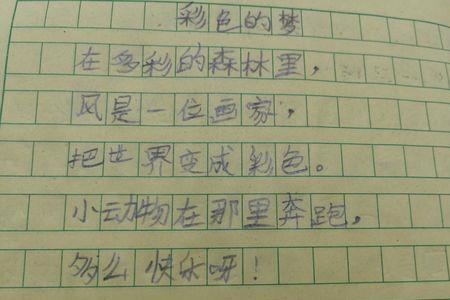 彩色的梦
在多彩的森林里，
风是一位画家，
把世界变成彩色。
小动物在那里奔跑，
多么快乐呀！